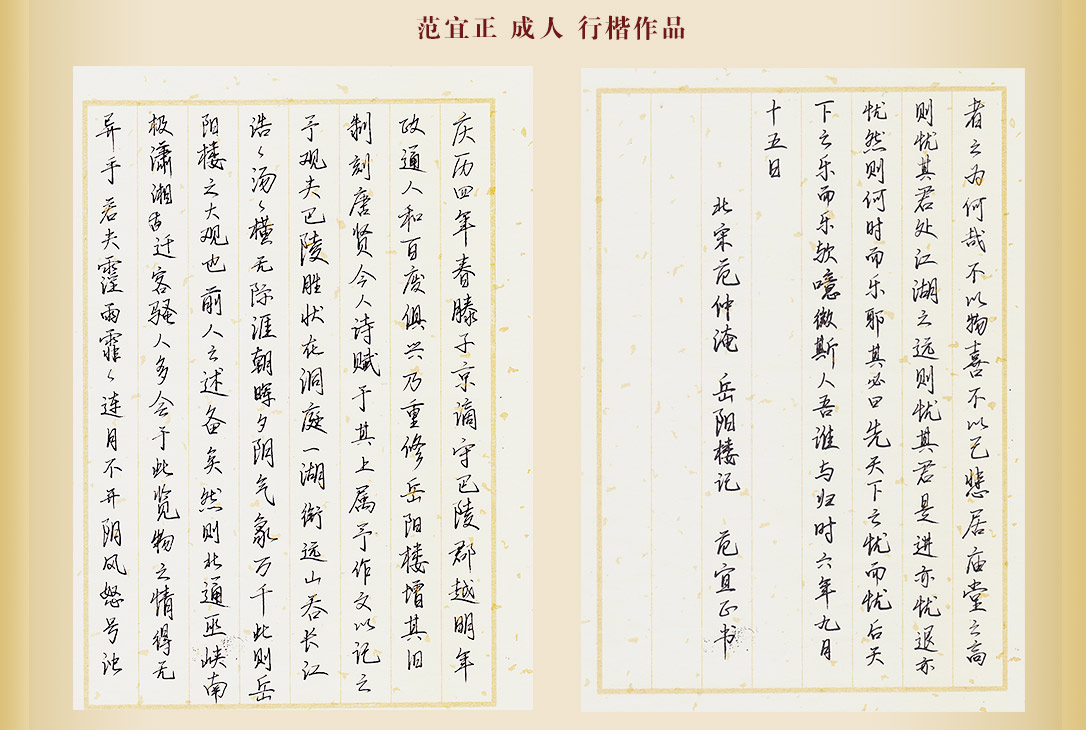 范宜正 成人 行楷作品
庆历四年春滕子京谪守巴陵郡越明年
政通人和百废俱兴乃重修岳阳楼增其旧
制刻唐贤今人诗赋于其上属予作文以记之
予观夫巴陵胜状在洞庭一湖衔远山吞长江
浩々汤々横无际涯朝晖夕阴气象万千此则岳
阳楼之大观也前人之述备矣然则北通巫峡南
极潇湘迁客骚人多会于此览物之情得无
异乎若夫霪雨霏々连月不开阴风怒号浊
者之为何哉不以物喜不以己悲居庙堂之高
则忧其君处江湖之远则忧其君是进亦忧退亦
忧然则何时而乐耶其必曰先天下之忧而忧后天
下之乐而乐欤噫微斯人吾谁与归时六年九月
十五日
北宋范仲淹 岳阳楼记 范宜正书